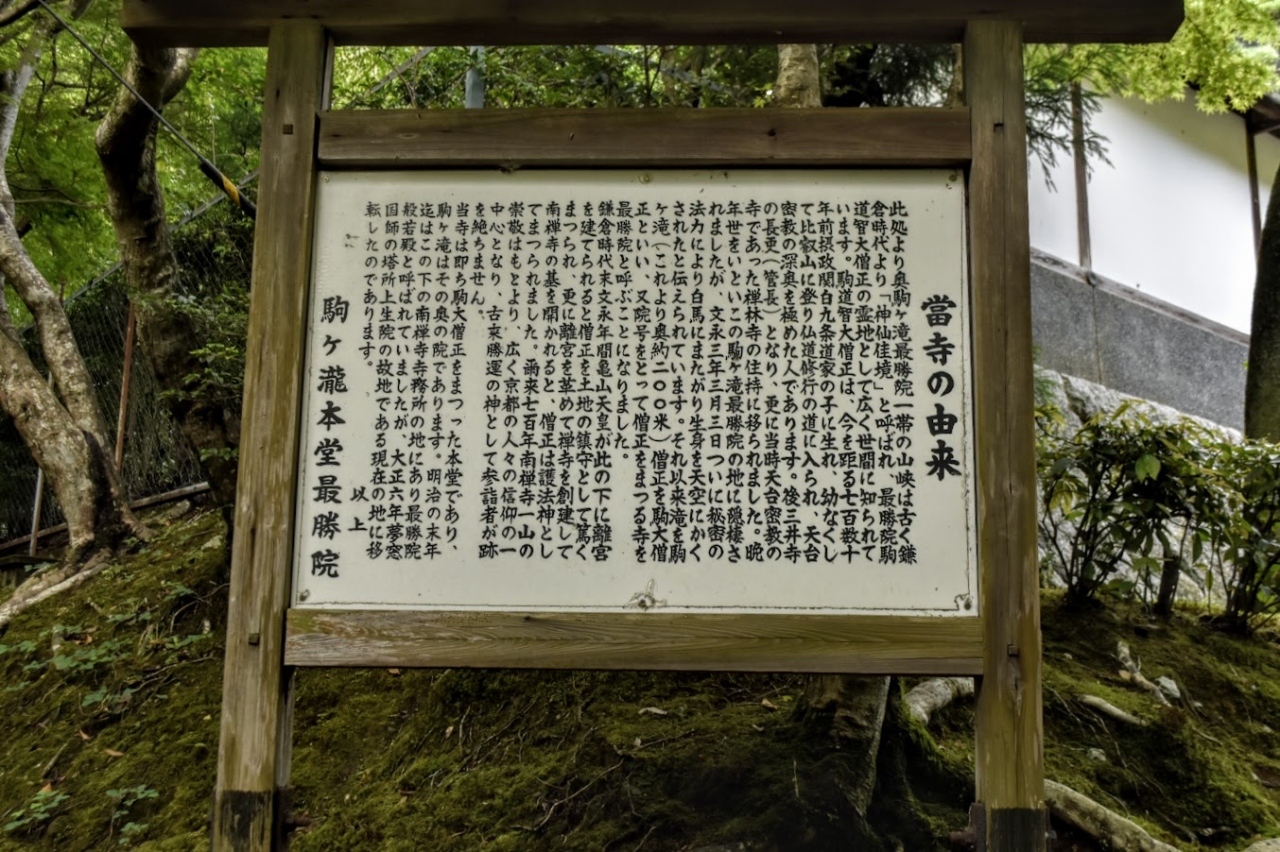 當寺の由来
此処より奥駒ヶ滝最勝院一帯の山峡は古く鎌
倉時代より「神仙佳境」と呼ばれ、最勝院駒
道智大僧正の霊地として広く世間に知られて
います。駒道智大僧正は、今を距る七百数十
年前摂政関白九条道家の子に生れ、幼なくし
て比叡山に登り仏道修行の道に入られ、天台
密教の深奥を極めた人であります。後三井寺
の長吏(管長)となり、更に当時天台密教の
寺であった禅林寺の住持に移られました。晩
年世をいといこの駒ヶ滝最勝院の地に隠棲さ
れましたが、文永三年三月三日ついに秘密の
法力により白馬にまたがり生身を天空にかく
されたと伝えられています。それ以来滝を駒
ヶ滝(これより奥約二〇〇米)僧正を駒大僧
正といい、又院号をとって僧正をまつる寺を
最勝院と呼ぶことになりました。
鎌倉時代末文永年間亀山天皇が此の下に離宮
を建てられると僧正を土地の鎮守として篤く
まつられ、更に離宮を革めて禅寺を創建して
南禅寺の基を開かれると、僧正は護法神とし
てまつられました。爾来七百年南禅寺一山の
崇敬はもとより、広く京都の人々の信仰の一
中心となり、古來勝運の神として参詣者が跡
を絶ちません。
当寺は即ち駒大僧正をまつった本堂であり、
駒ヶ滝はその奥の院であります。明治の末年
迄はこの下の南禅寺寺務所の地にあり最勝院
般若殿と呼ばれていましたが、大正六年夢窓
国師の塔所上生院の故地である現在の地に移
転したのであります。
以上
駒ヶ瀧本堂最勝院